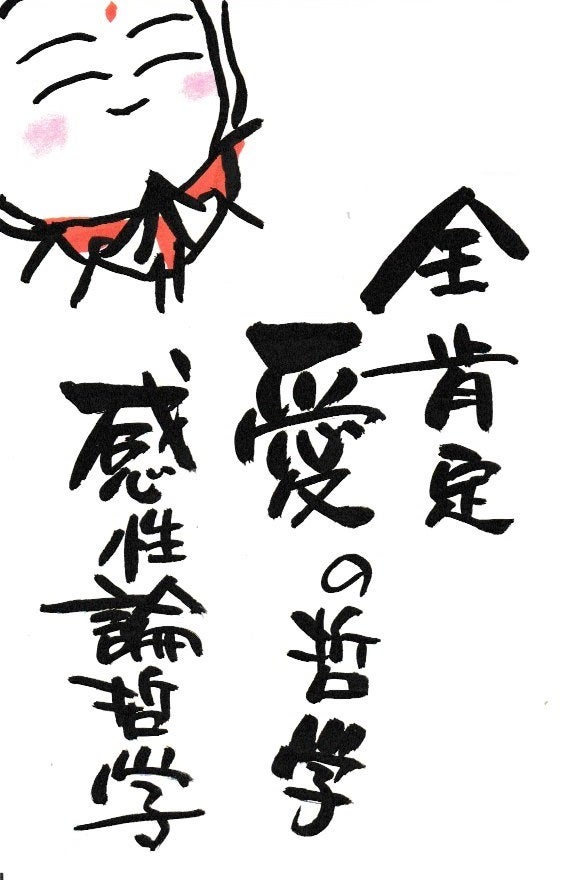 全肯定
愛の哲学
感性論哲学